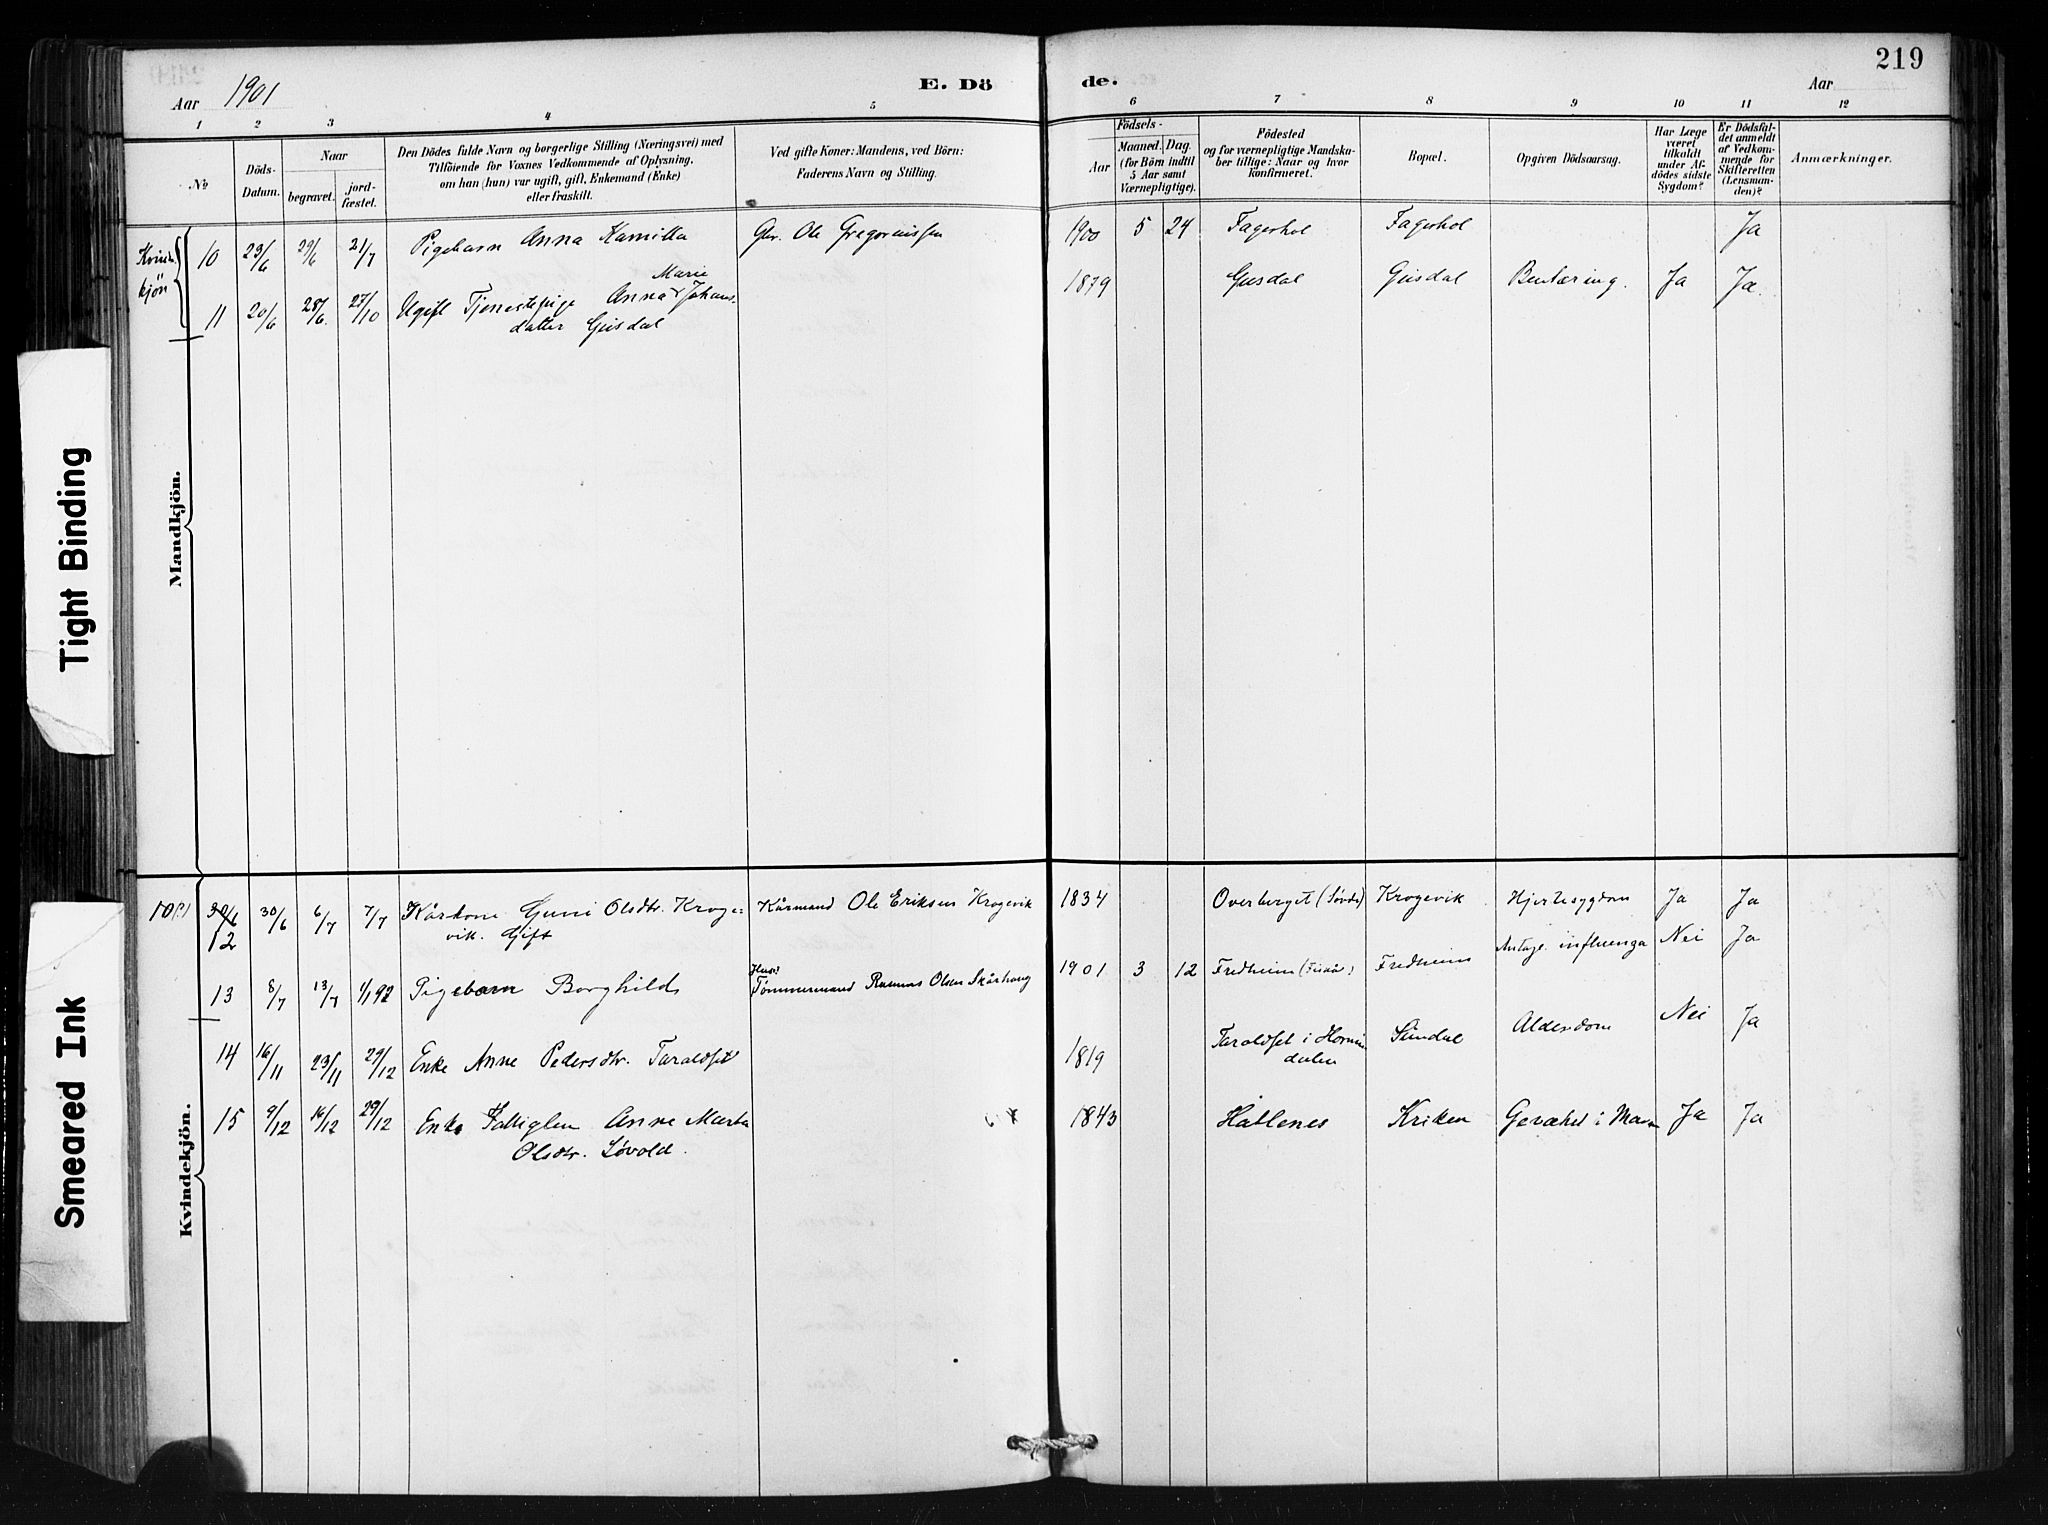 219
Aar 1901
E. Dö
de.
Aar
1 2 3 4 5 6 7 8 9 10 11 12
No
Döds-
Datum.
Naar
begravet.
jord-
fæstet.
Den Dödes fulde Navn og borgerlige Stilling (Næringsvei) med
Tilföiende for Voxnes Vedkommende af Oplysning,
om han (hun) var ugift, gift, Enkemand (Enke)
eller fraskilt.
Ved gifte Koner: Mandens, ved Börn:
Faderens Navn og Stilling.
Födsels-
Aar
Maaned. Dag.
(for Börn indtil
5 Aar samt
Værnepligtige).
Födested
og for værnepligtige Mandska-
ber tillige: Naar og hvor
konfirmeret.
Bopæl.
Opgiven Dödsaarsag.
Har Læge
været
tilkaldt
under Af-
dödes sidste
Sygdom?
Er Dödsfal-
det anmeldt
af Vedkom-
mende for
Skifteretten
(Lensman-
den)?
Anmærkninger.
Kvinde-
kjön
10 23/6 29/6 21/7 Pigebarn Anna Kamilla Gbr. Ole Gregoriussen 1900 5 24 Fagerhol Fagerhol Ja
11 20/6 28/6 27/10 Ugift Tjenestepige Anna Marie Johans-
datter Gusdal 1879 Gusdal Gusdal Ja Ja.
Mandkjön.
Tight Binding
1901 30/6
12 30/6 6/7 7/7 Kårkone Guni Olsdtr. Kroge-
vik. Gift Kårmand Ole Eriksen Krogevik 1834 Overberget Krogevik Hjertesygdom Ja Ja
13 8/7 13/7 1/1 92 Pigebarn Borghild Tømmermand Rasmus Olsen Skårhaug 1901 3 12 Fredheim Fredheim Antagl. influenza Nei Ja
14 16/11 23/11 29/12 Enke Anne Pedersdtr. Taraldset 1819 Taraldset i Hornin-
dalen Sindal Alderdom Nei Ja
15 9/12 16/12 29/12 Enke Fattiglem Anne Marta
Olsdtr. Løvold. 1843 Hatlenes Kriken Gevækst i Ja Ja
Kvindekjön.
Smeared Ink